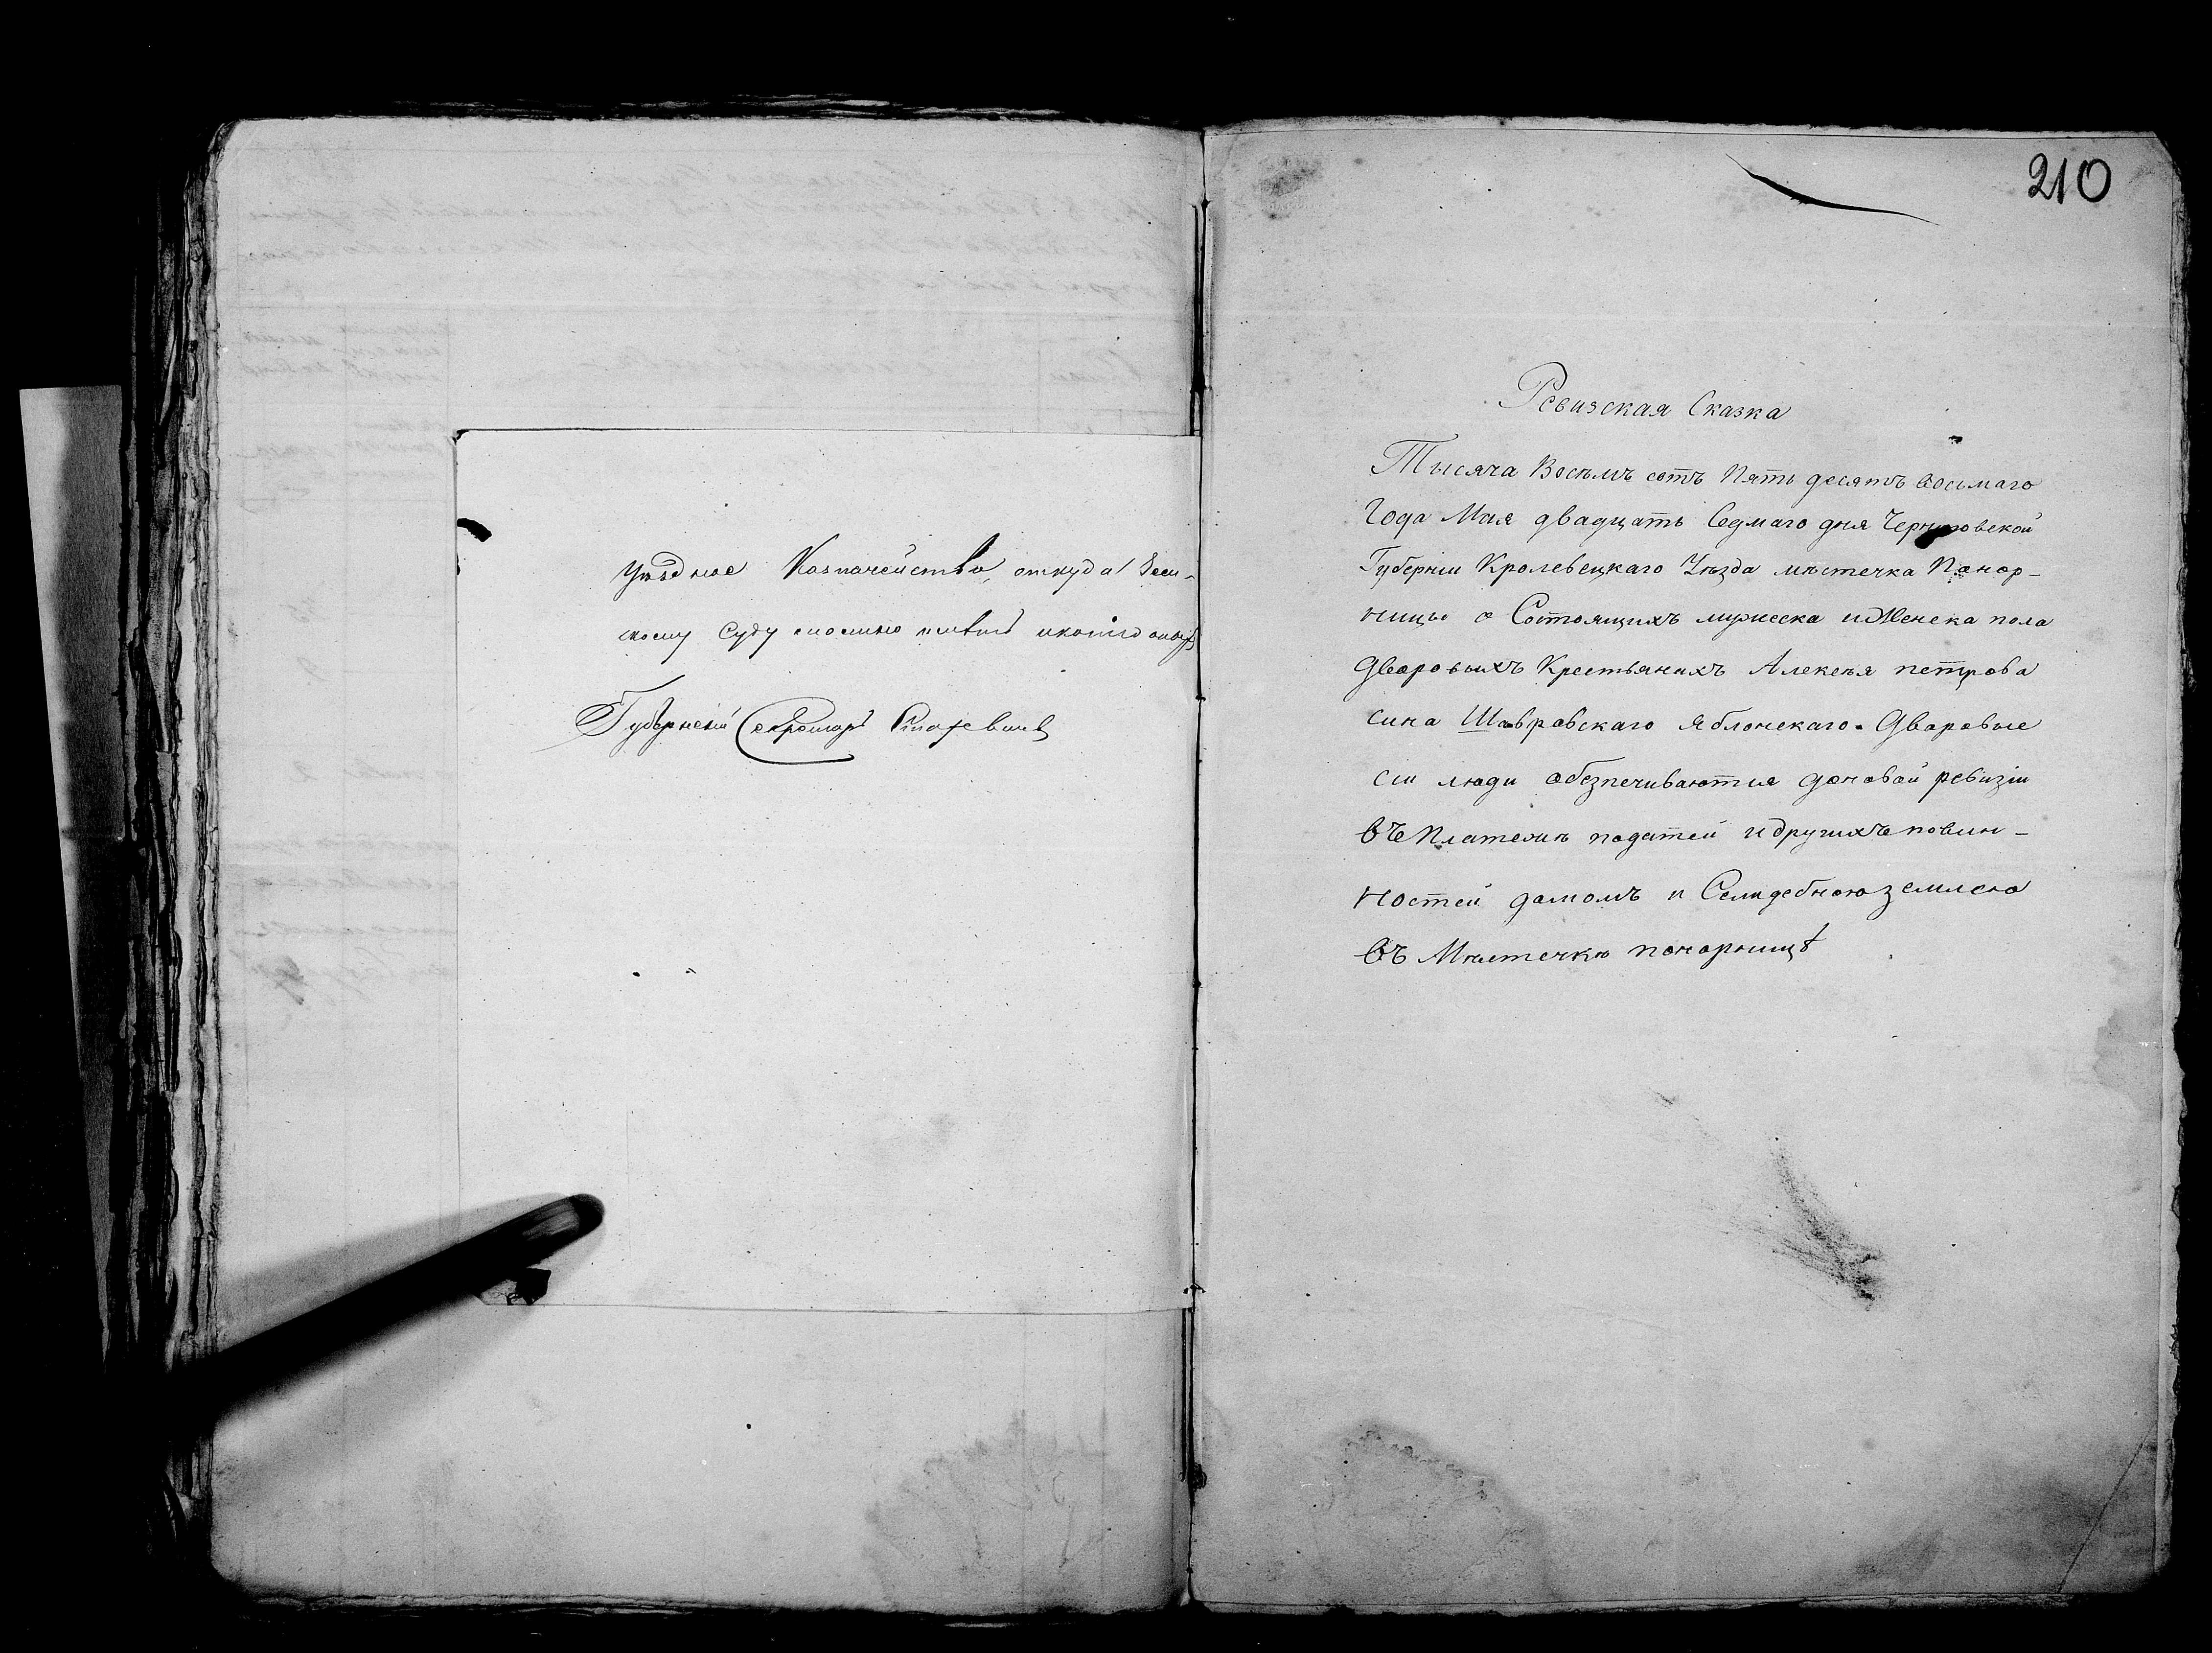 уѣздное Казначейство, откуда Зем-
скому Суду
Губернскій Секретарь
210
Ревизская Сказка
Тысяча Восѣмъ сотъ Пять десятъ восьмаго
Года Мая двадцать Седмаго дня Черниговской
Губерніи Кролевецкаго Уѣзда мѣстечка Понор-
ницы о Состоящихъ мужеска и Женска пола
Дворовыхъ Крестьянихъ Алексѣя петрова
сина Шавровскаго Яблонскаго. Дворовые
сіи люди обезпечиваются доновой ревизіи
въ Платежѣ податей и другихъ повин-
ностей домомъ и Селидебною землею
въ Мѣстечкѣ понорницѣ